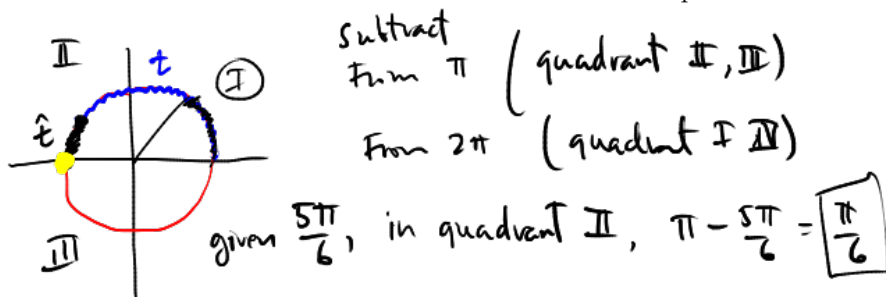 II
t
I
t̂
III
subtract
From π (quadrant II, III)
From 2π (quadrant I IV)
given 5π/6, in quadrant II, π - 5π/6 = π/6